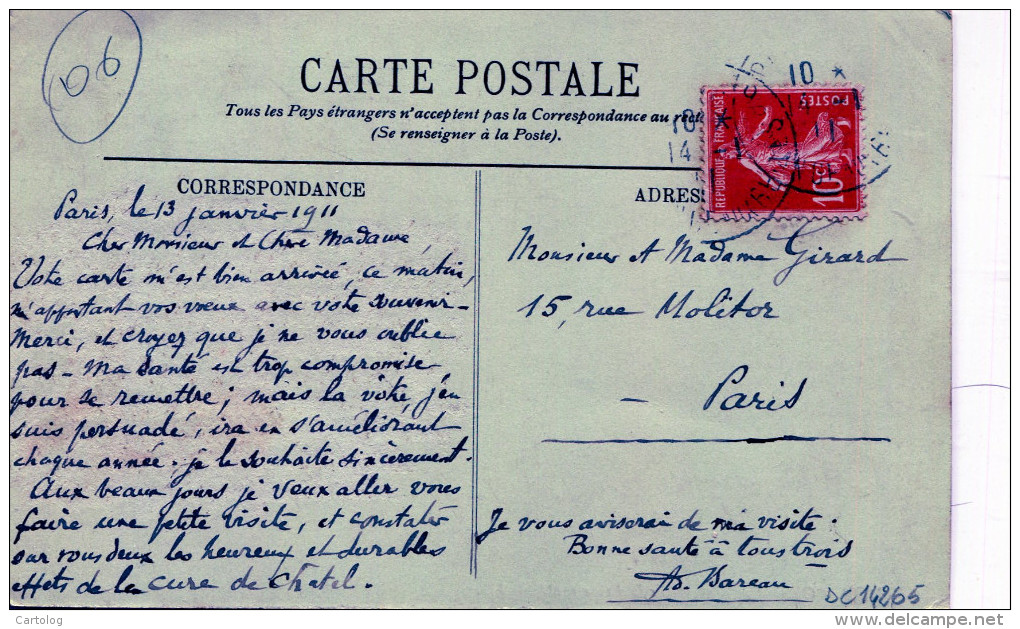 106
CARTE POSTALE
Tous les Pays étrangers n'acceptent pas la Correspondance au recto
(Se renseigner à la Poste).
10 *
10 *
14
11
RÉPUBLIQUE FRANÇAISE
POSTES
10c
CORRESPONDANCE
Paris, le 13 janvier 1911
Cher Monsieur et Chère Madame,
Votre carte m'est bien arrivée, ce matin,
m'apportant vos voeux avec votre souvenir -
Merci, et croyez que je ne vous oublie
pas - Ma santé est trop compromise
pour se remettre ; mais la vôtre, j'en
suis persuadé, ira en s'améliorant
chaque année. je le souhaite sincèrement.
Aux beaux jours je veux aller vous
faire une petite visite, et constater
sur vous deux les heureux et durables
effets de la cure de Chatel.
ADRES
Monsieur et Madame Girard
15, rue Molitor
- Paris
Je vous aviserai de ma visite.
Bonne santé à tous trois
Ad. Bareau
DC 14265
Cartolog
www.delcampe.net